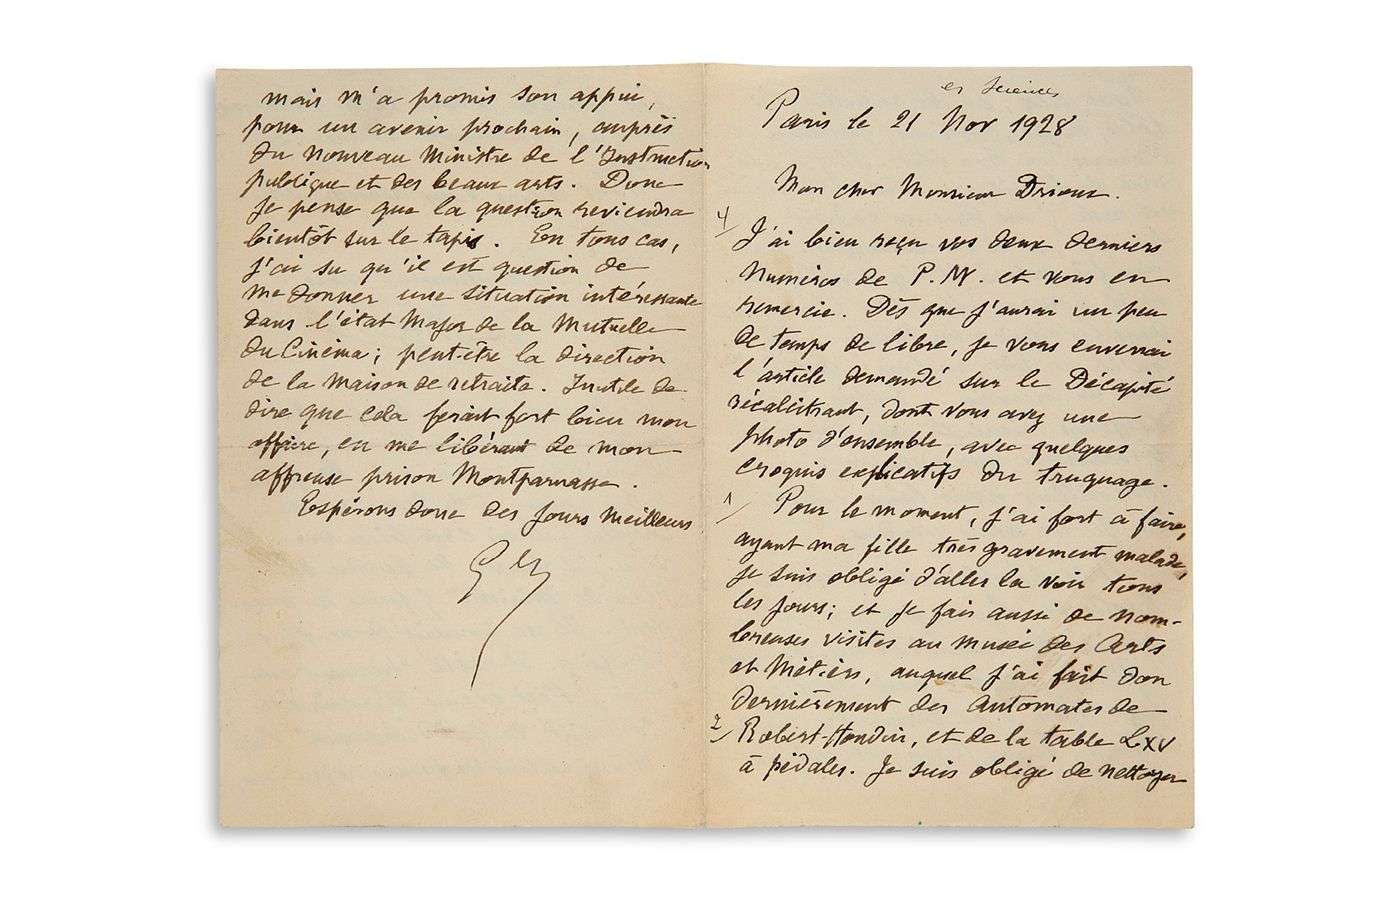 es Sciences
Paris le 21 Nov 1928
Mon cher Monsieur Drioux.
4/
J'ai bien reçu vos deux derniers
Numéros de P.M. et vous en
remercie. Dès que j'aurai un peu
de temps de libre, je vous enverrai
l'article demandé sur le Décapité
récalcitrant, dont vous avez une
photo d'ensemble, avec quelques
croquis explicatifs du truquage.
1/
Pour le moment, j'ai fort à faire,
ayant ma fille très gravement malade,
je suis obligé d'aller la voir tous
les jours; et je fais aussi de nom-
breuses visites au musée des Arts
et Métiers, auquel j'ai fait don
dernièrement des Automates de
2/
Robert-Houdin, et de la table LXV
à pédales. Je suis obligé de nettoyer
mais m'a promis son appui,
pour un avenir prochain, auprès
du Nouveau Ministre de l'Instruction
publique et des beaux arts. Donc
je pense que la question reviendra
bientôt sur le tapis. En tous cas,
j'ai su qu'il est question de
me donner une situation intéressante
dans l'état Major de la Mutuelle
du Cinéma; peut-être la direction
de la Maison de retraite. Inutile de
dire que cela ferait fort bien mon
affaire, en me libérant de mon
affreuse prison Montparnasse.
Espérons donc des jours meilleurs